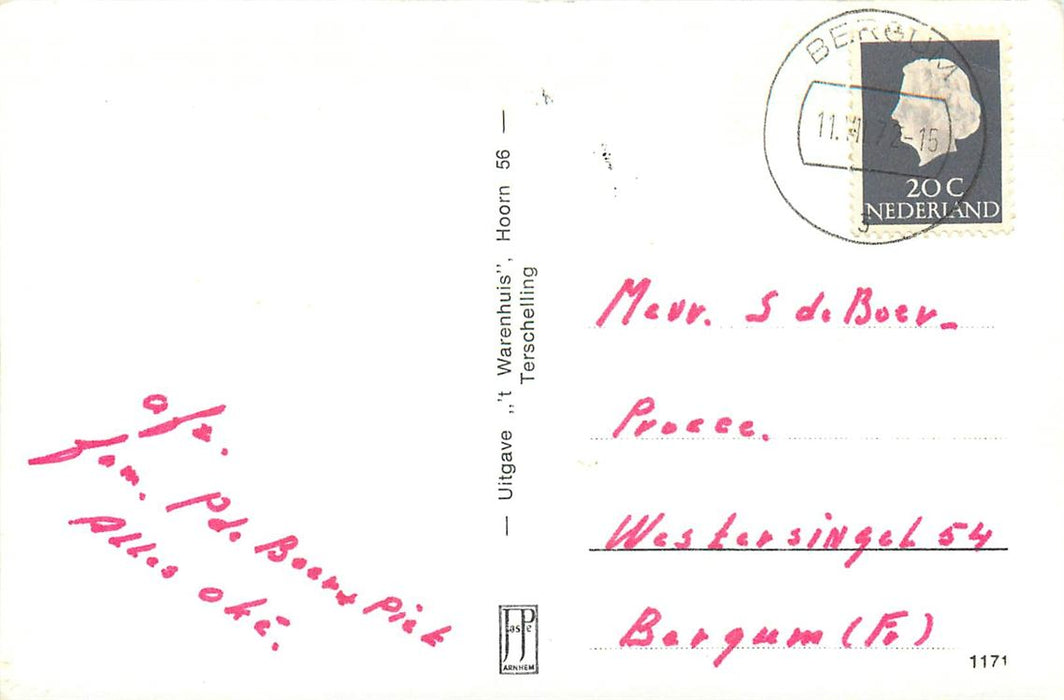 BERGUM
20 C
NEDERLAND
— Uitgave „'t Warenhuis”, Hoorn 56 —
Terschelling
Mevr. S de Boer-
Procee.
Westersingel 54
Bergum (Fr)
afz.
fam. P de Boer + Piek
Alles oké.
JosPé
ARNHEM
1171